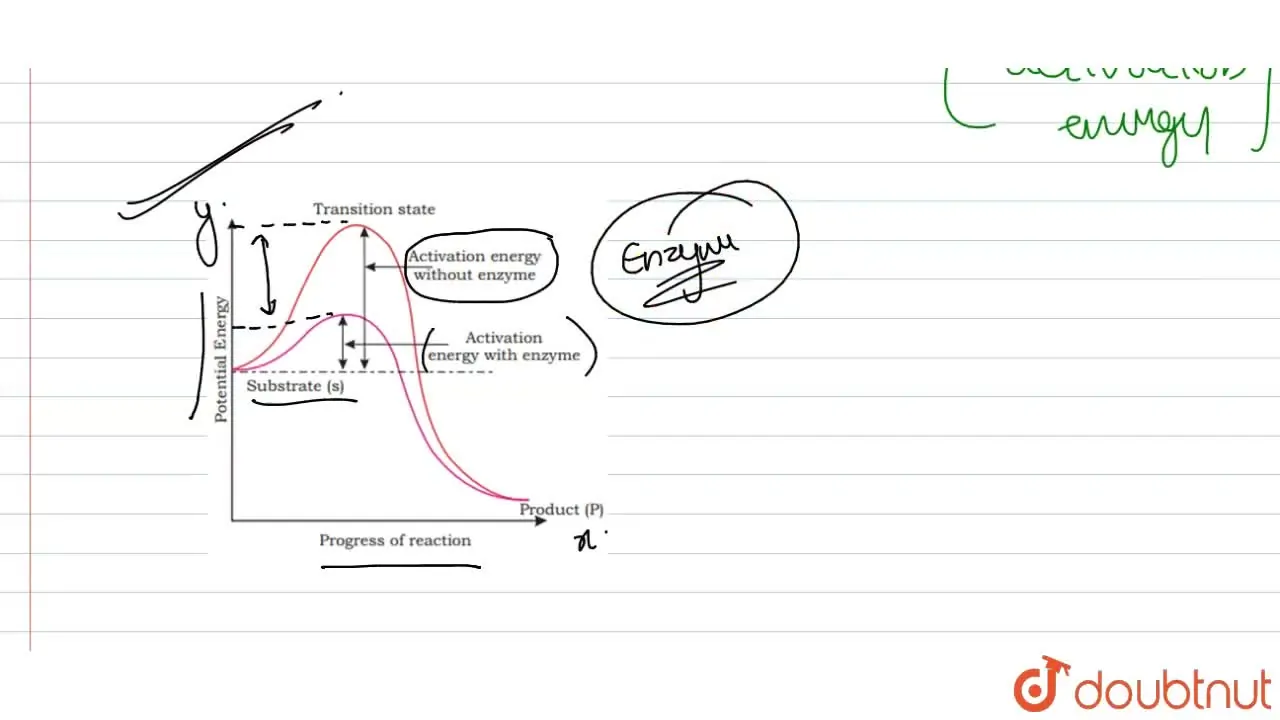 energy
y.
Transition state
Activation energy
without enzyme
Enzyme
Activation
energy with enzyme
Potential Energy
Substrate (s)
Product (P)
x.
Progress of reaction
doubtnut